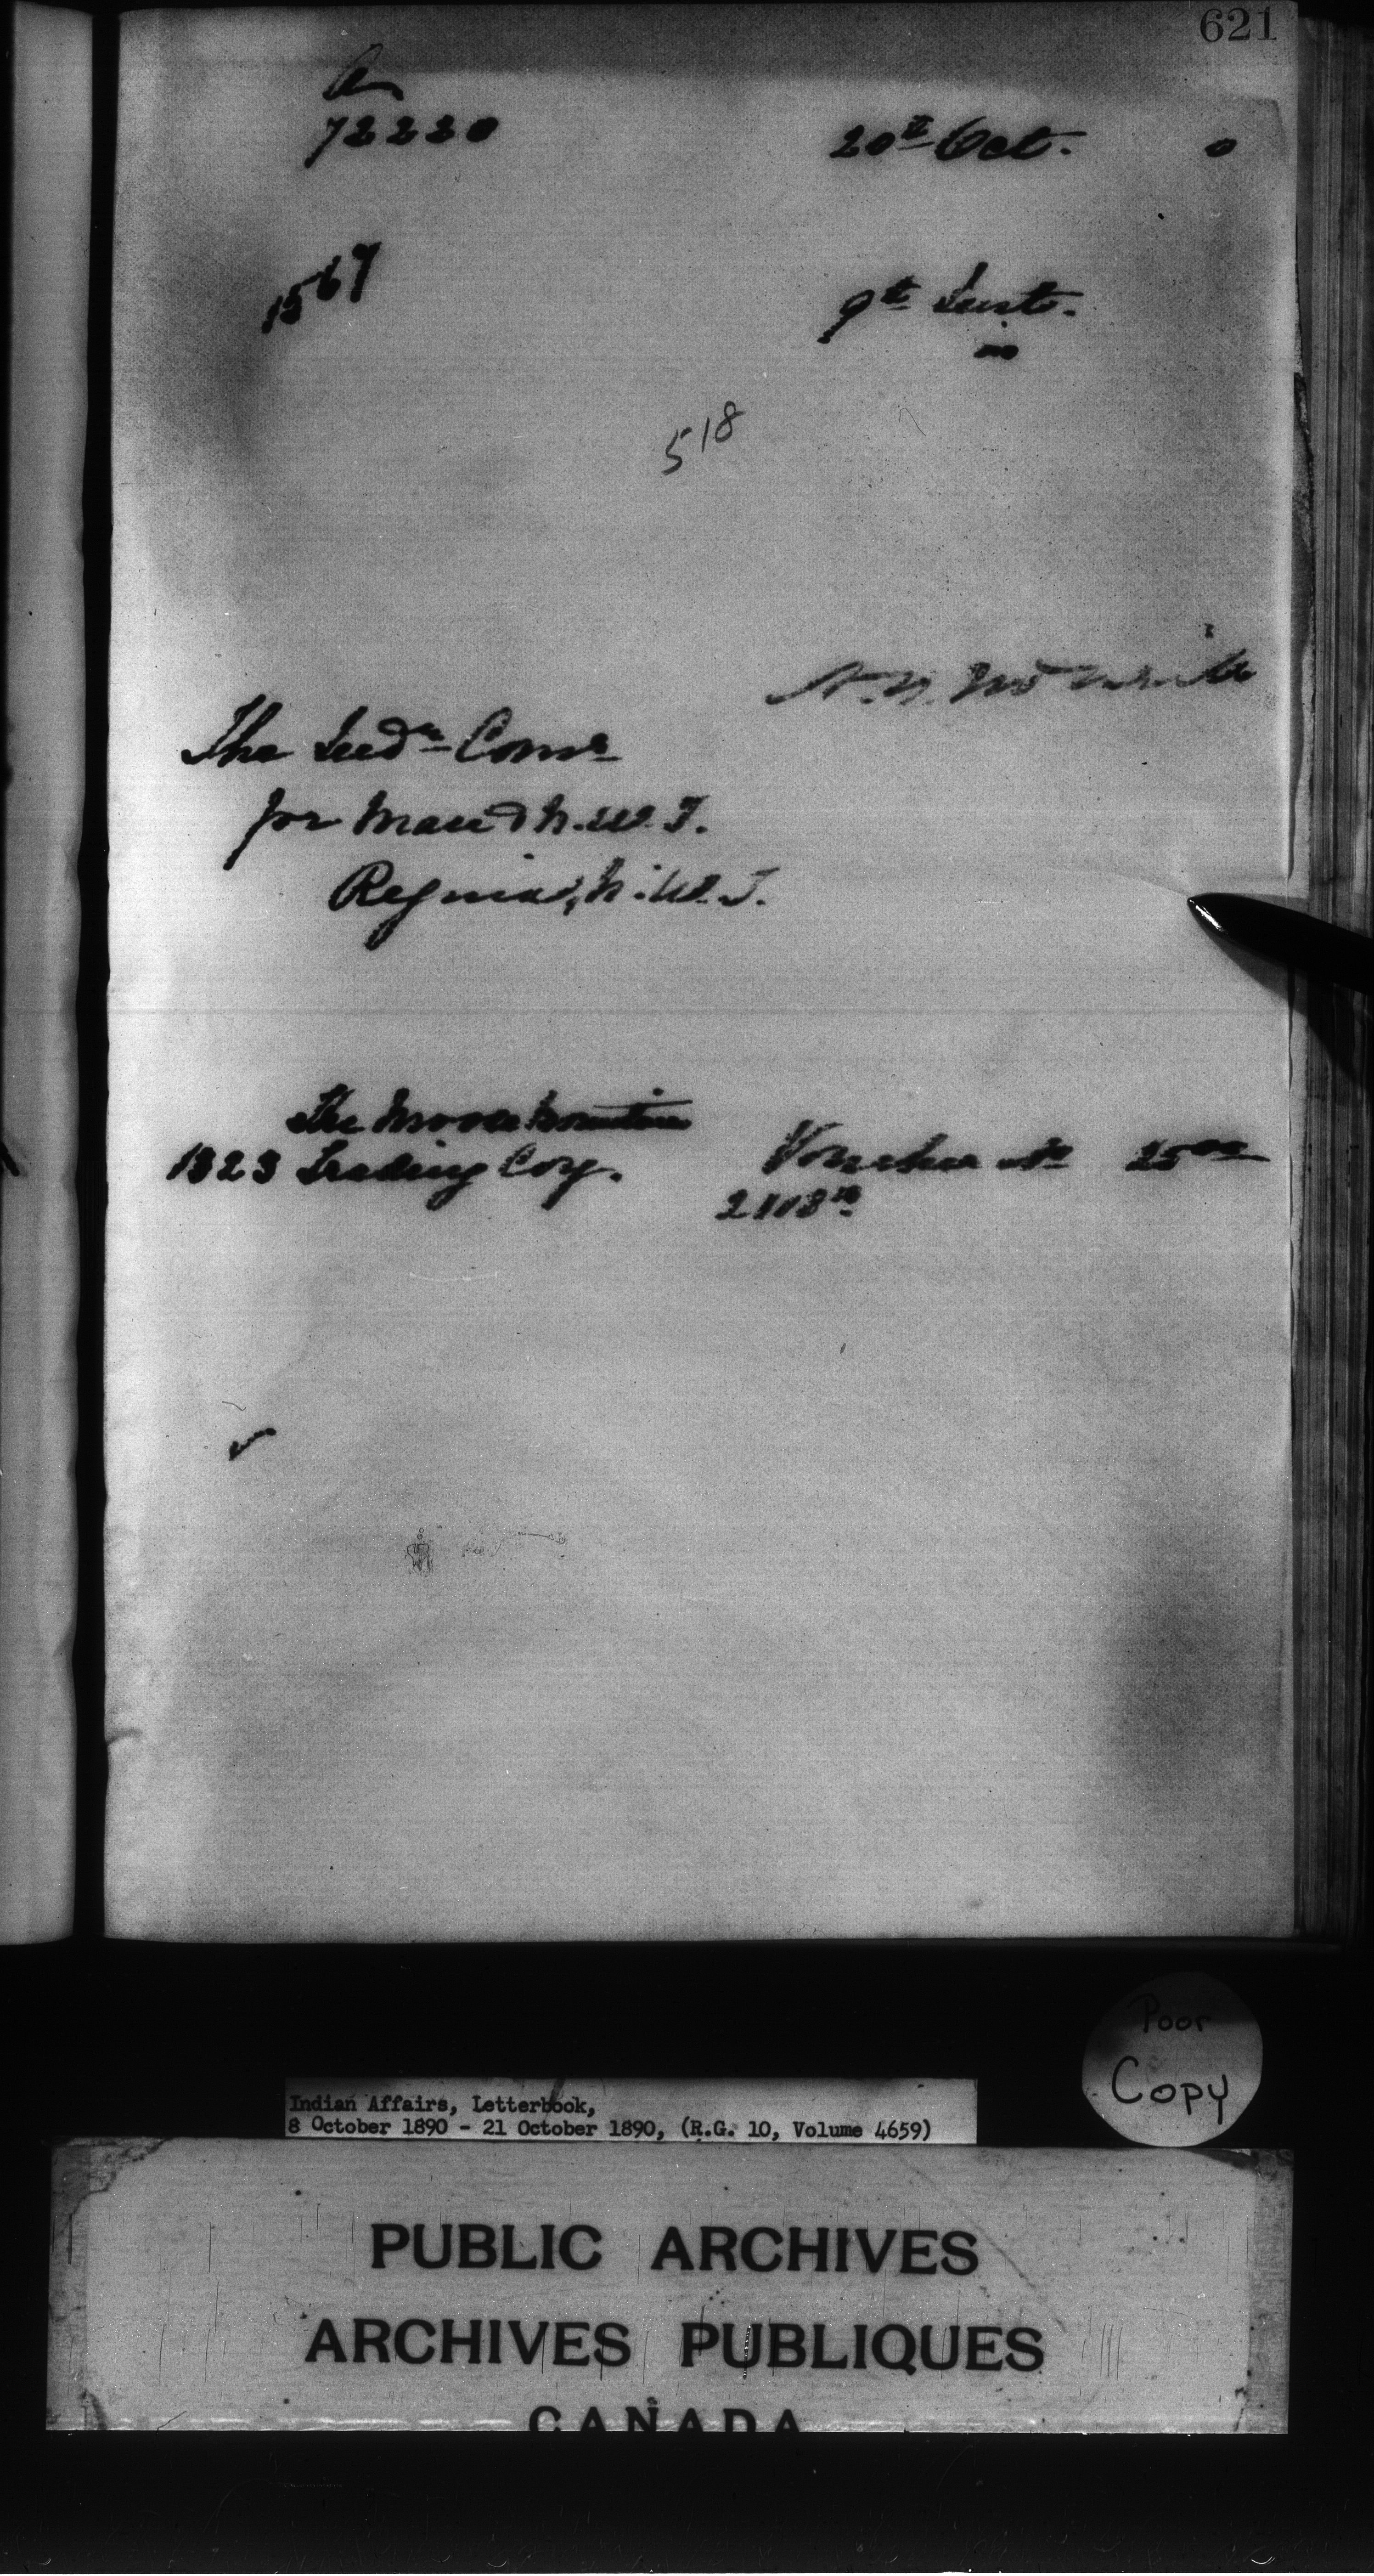 621
72220 20th Oct. 0
1567 9th Inst.
518
The Indn Comr
for Man & N.W.T.
Regina, N.W.T.
The Moose Mountain
1323 Trading Coy. Voucher No 25
Poor
Copy
Indian Affairs, Letterbook,
8 October 1890 - 21 October 1890, (R.G. 10, Volume 4659)
PUBLIC ARCHIVES
ARCHIVES PUBLIQUES
CANADA